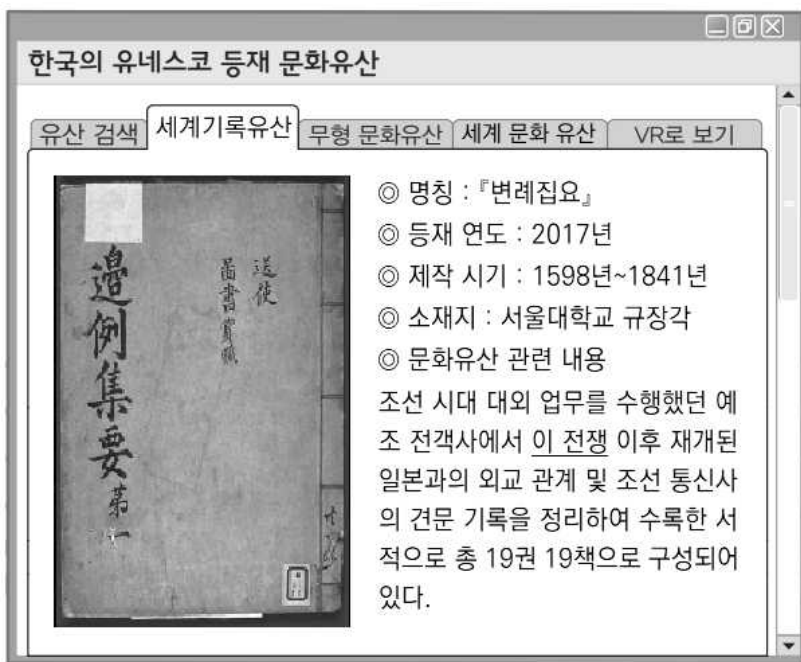 한국의 유네스코 등재 문화유산
유산 검색
세계기록유산
무형 문화유산
세계 문화 유산
VR로 보기
邊例集要 第一
送使
圖書賞職
◎ 명칭 : 『변례집요』
◎ 등재 연도 : 2017년
◎ 제작 시기 : 1598년~1841년
◎ 소재지 : 서울대학교 규장각
◎ 문화유산 관련 내용
조선 시대 대외 업무를 수행했던 예
조 전객사에서 이 전쟁 이후 재개된
일본과의 외교 관계 및 조선 통신사
의 견문 기록을 정리하여 수록한 서
적으로 총 19권 19책으로 구성되어
있다.